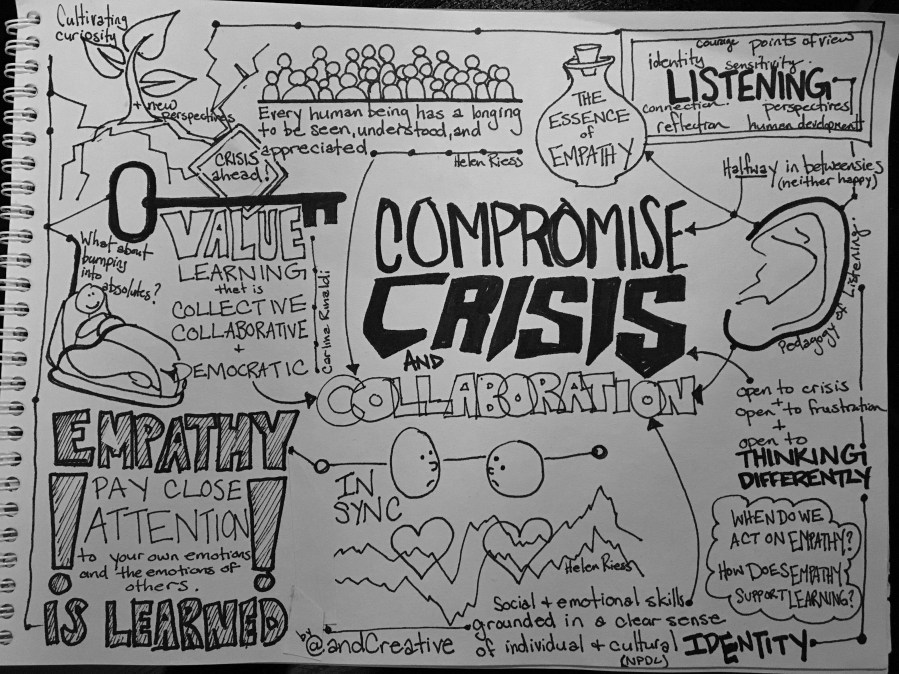 Cultivating
curiosity
+ new
perspectives
CRISIS
ahead!
Every human being has a longing
to be seen, understood, and
appreciated
Helen Riess
THE
ESSENCE
of
EMPATHY
courage points of view
identity sensitivity
LISTENING
connection perspectives
reflection human development
Halfway in betweensies
(neither happy)
Pedagogy of Listening...
What about
bumping
into
absolutes?
VALUE
LEARNING
that is
COLLECTIVE
COLLABORATIVE
+
DEMOCRATIC
Carlina Rinaldi
COMPROMISE
CRISIS
AND
COLLABORATION
open to crisis
+
open to frustration
+
open to
THINKING
DIFFERENTLY
EMPATHY
! PAY CLOSE !
ATTENTION
to your own emotions
and the emotions of
others.
IS LEARNED
IN
SYNC
Helen Riess
WHEN DO WE
ACT ON EMPATHY?
HOW DOES EMPATHY
SUPPORT LEARNING?
Social + emotional skills
grounded in a clear sense
of individual + cultural IDENTITY
(NPDL)
by
@andCreative